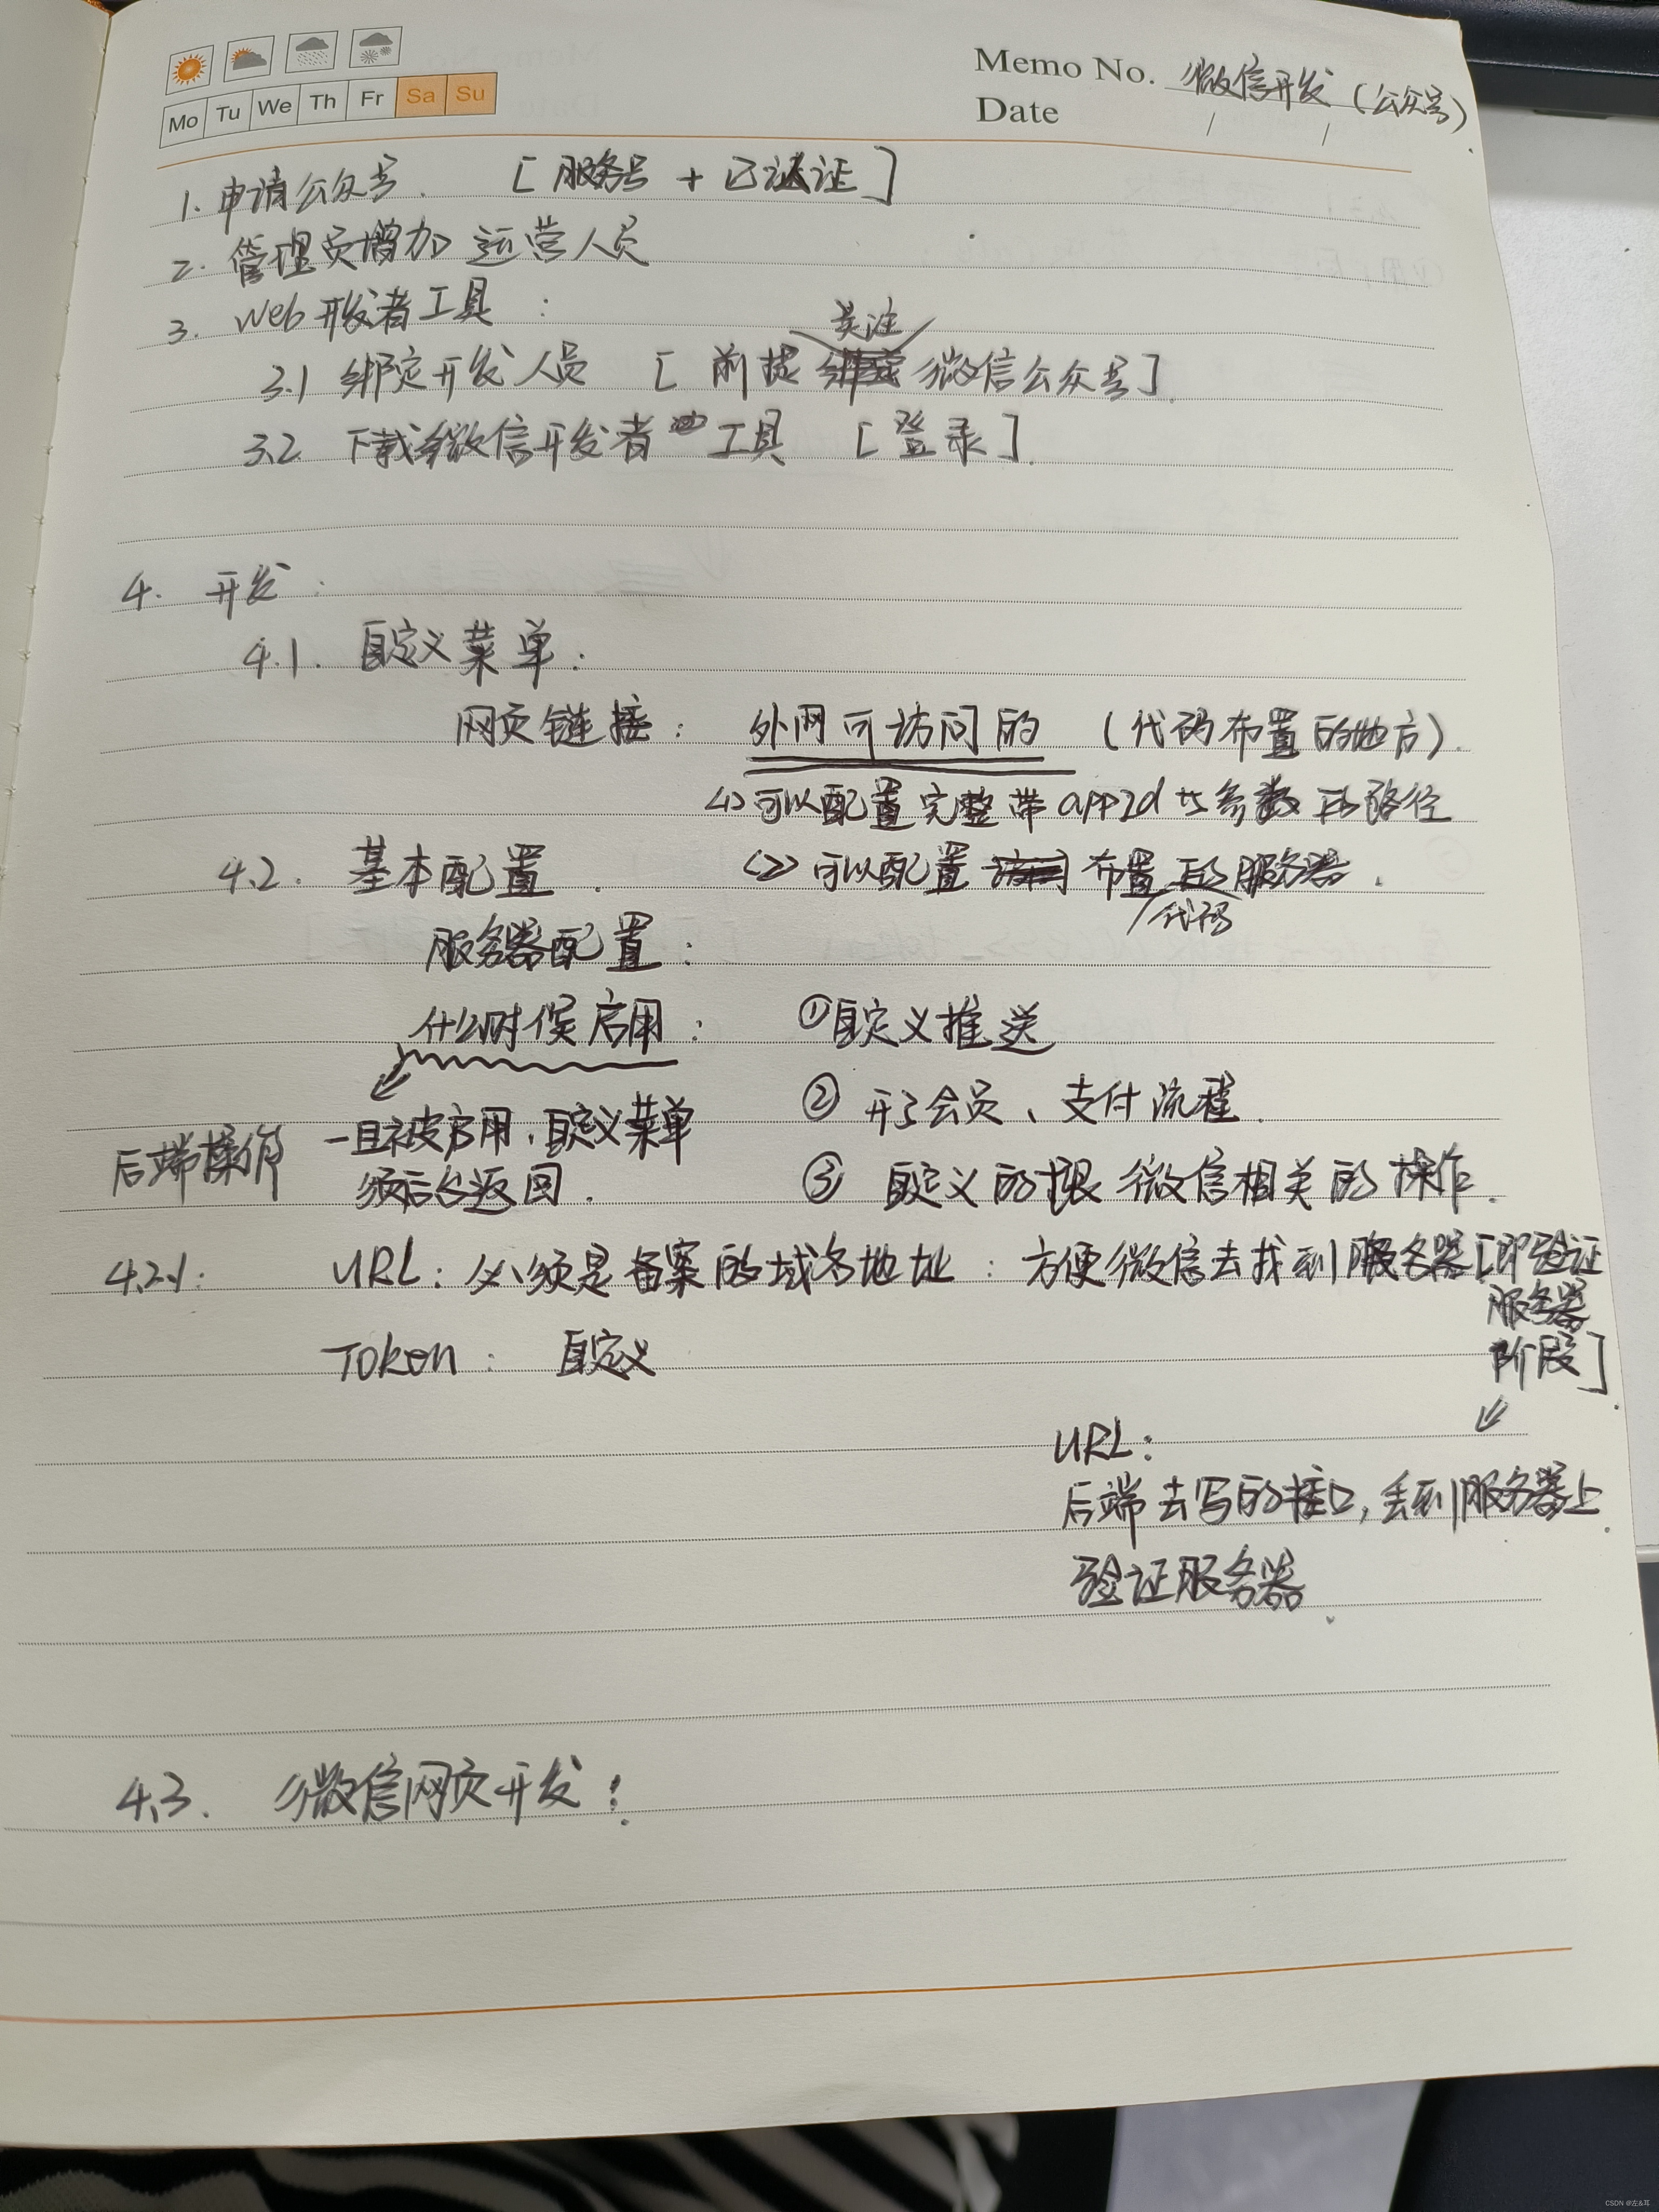 Memo No. 微信开发(公众号)
Mo Tu We Th Fr Sa Su
Date / /
1. 申请公众号. [服务号 + 已认证]
2. 管理员增加 运营人员
3. Web开发者工具:
关注
3.1 绑定开发人员 [前提 微信公众号].
3.2 下载微信开发者工具 [登录].
4. 开发:
4.1. 自定义菜单:
网页链接: 外网可访问的 (代码布置的地方).
<1>可以配置完整带appid 参数的路径
4.2. 基本配置. <2>可以配置 布置的服务器.
代码
服务器配置:
什么时候启用: ①自定义推送
② 开了会员、支付流程.
一旦被启用,自定义菜单
后端操作
须后台返回. ③ 自定义的跟微信相关的操作.
4.2.1: URL: 必须是备案的域名地址: 方便微信去找到服务器[即验证
服务器
Token: 自定义 阶段]
URL:
后端去写的接口,丢到服务器上
验证服务器.
4.3. 微信网页开发:
CSDN @左&耳